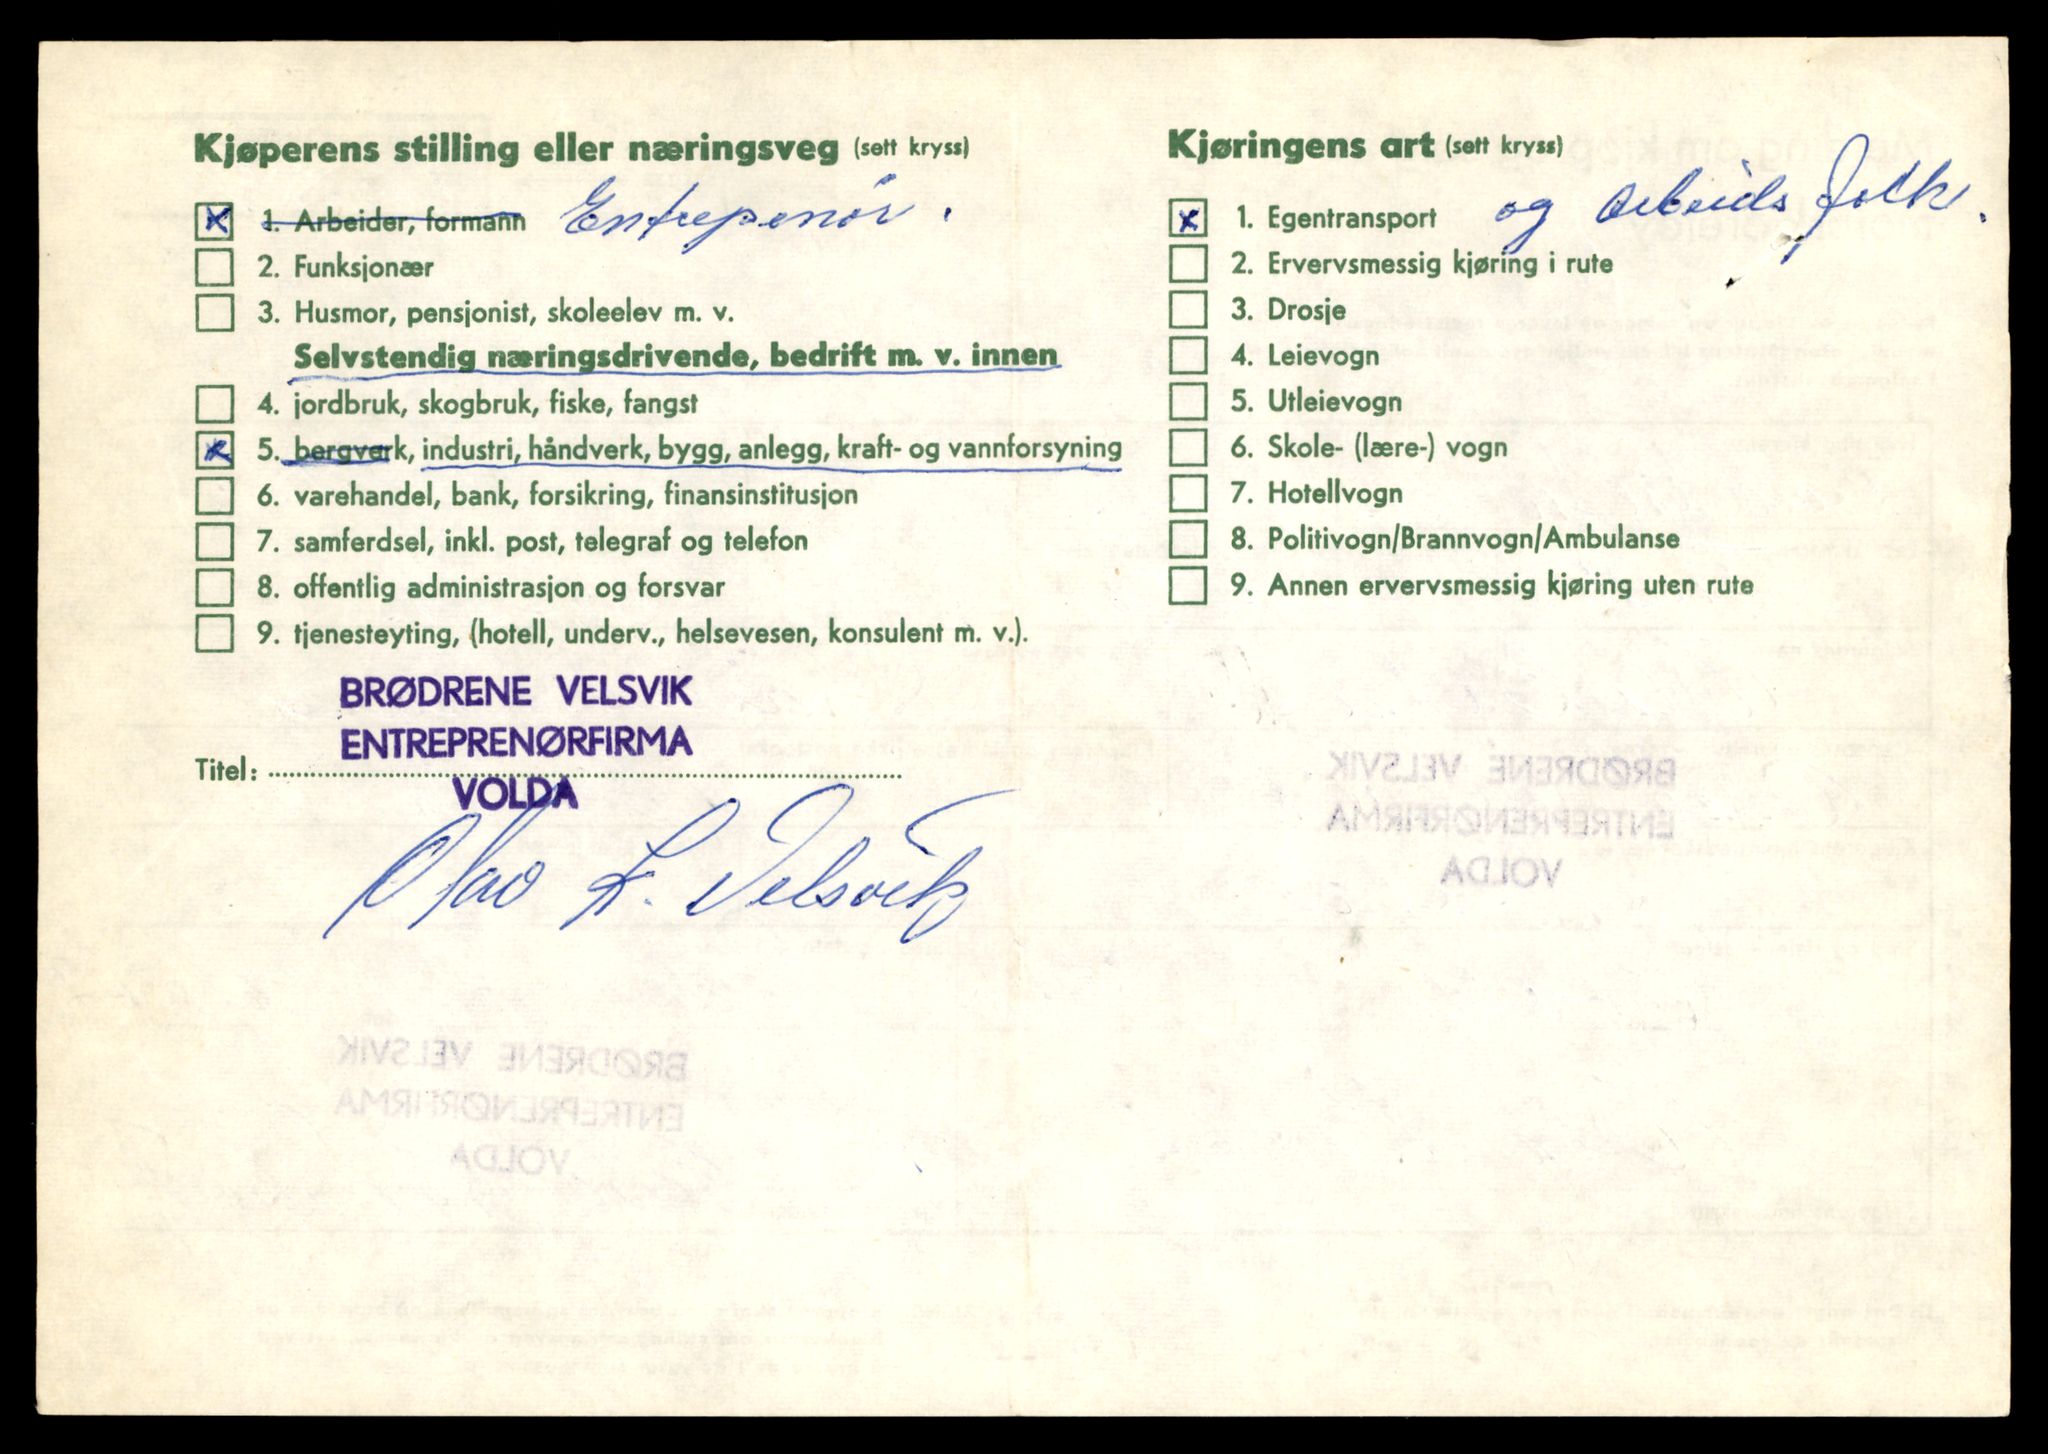 Kjøperens stilling eller næringsveg (sett kryss)
1. Arbeider, formann Entrepenør.
2. Funksjonær
3. Husmor, pensjonist, skoleelev m. v.
Selvstendig næringsdrivende, bedrift m. v. innen
4. jordbruk, skogbruk, fiske, fangst
5. bergverk, industri, håndverk, bygg, anlegg, kraft- og vannforsyning
6. varehandel, bank, forsikring, finansinstitusjon
7. samferdsel, inkl. post, telegraf og telefon
8. offentlig administrasjon og forsvar
9. tjenesteyting, (hotell, underv., helsevesen, konsulent m. v.).
BRØDRENE VELSVIK
ENTREPRENØRFIRMA
Titel:
VOLDA
Olav L. Velsvik
Kjøringens art (sett kryss)
1. Egentransport og arbeids folk.
2. Ervervsmessig kjøring i rute
3. Drosje
4. Leievogn
5. Utleievogn
6. Skole- (lære-) vogn
7. Hotellvogn
8. Politivogn/Brannvogn/Ambulanse
9. Annen ervervsmessig kjøring uten rute
BRØDRENE VELSVIK
ENTREPRENØRFIRMA
VOLDA
BRØDRENE VELSVIK
ENTREPRENØRFIRMA
VOLDA